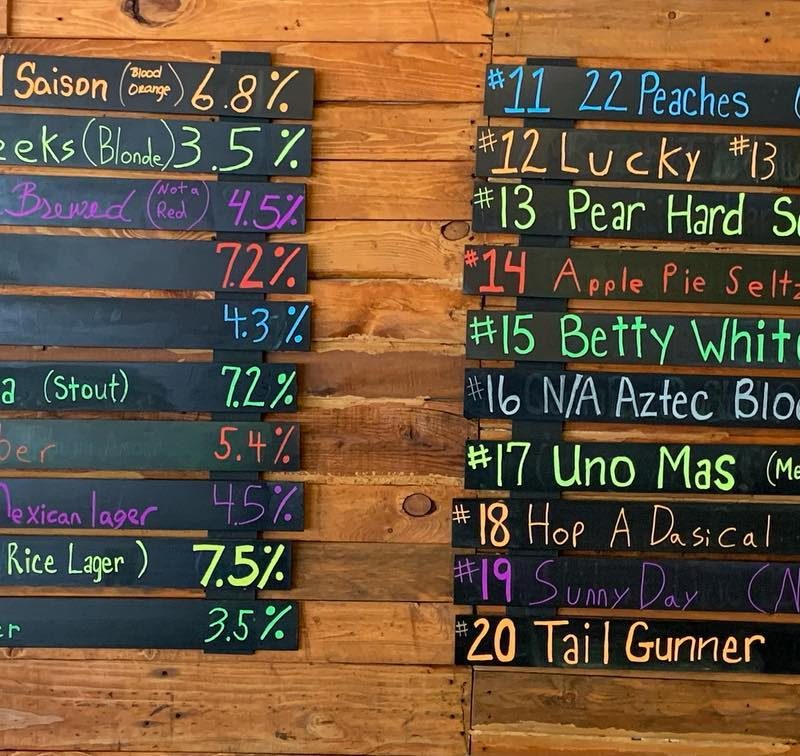 Saison (Blood Orange) 6.8%
eeks (Blonde) 3.5%
Brewed (Not a Red) 4.5%
7.2%
4.3%
a (Stout) 7.2%
ber 5.4%
Mexican lager 4.5%
Rice Lager) 7.5%
er 3.5%
#11 22 Peaches (
#12 Lucky #13
#13 Pear Hard Se
#14 Apple Pie Seltz
#15 Betty White
#16 N/A Aztec Bloo
#17 Uno Mas (Me
#18 Hop A Dasical
#19 Sunny Day (N
#20 Tail Gunner